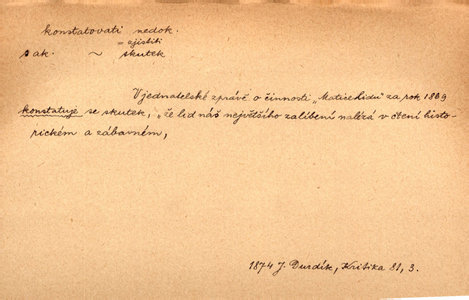 konstatovati nedok.
= zjistiti
s ak. ~ skutek
V jednatelské zprávě o činnosti „Matice lidu" za rok 1869
konstatuje se skutek, „že lid náš největšího zalíbení nalézá v čtení histo-
rickém a zábavném,
1874 J. Durdík, Kritika 81, 3.